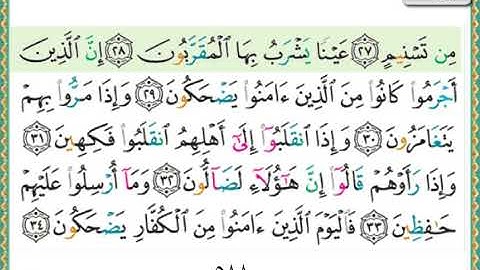 مِن تَسْنِيمٍ ٢٧ عَيْنًا يَشْرَبُ بِهَا الْمُقَرَّبُونَ ٢٨ إِنَّ الَّذِينَ
أَجْرَمُوا۟ كَانُوا۟ مِنَ الَّذِينَ ءَامَنُوا۟ يَضْحَكُونَ ٢٩ وَإِذَا مَرُّوا۟ بِهِمْ
يَتَغَامَزُونَ ٣٠ وَإِذَا انقَلَبُوٓا۟ إِلَىٰٓ أَهْلِهِمُ انقَلَبُوا۟ فَكِهِينَ ٣١
وَإِذَا رَأَوْهُمْ قَالُوٓا۟ إِنَّ هَٰٓؤُلَآءِ لَضَآلُّونَ ٣٢ وَمَآ أُرْسِلُوا۟ عَلَيْهِمْ
حَٰفِظِينَ ٣٣ فَالْيَوْمَ الَّذِينَ ءَامَنُوا۟ مِنَ الْكُفَّارِ يَضْحَكُونَ ٣٤
٥٨٨